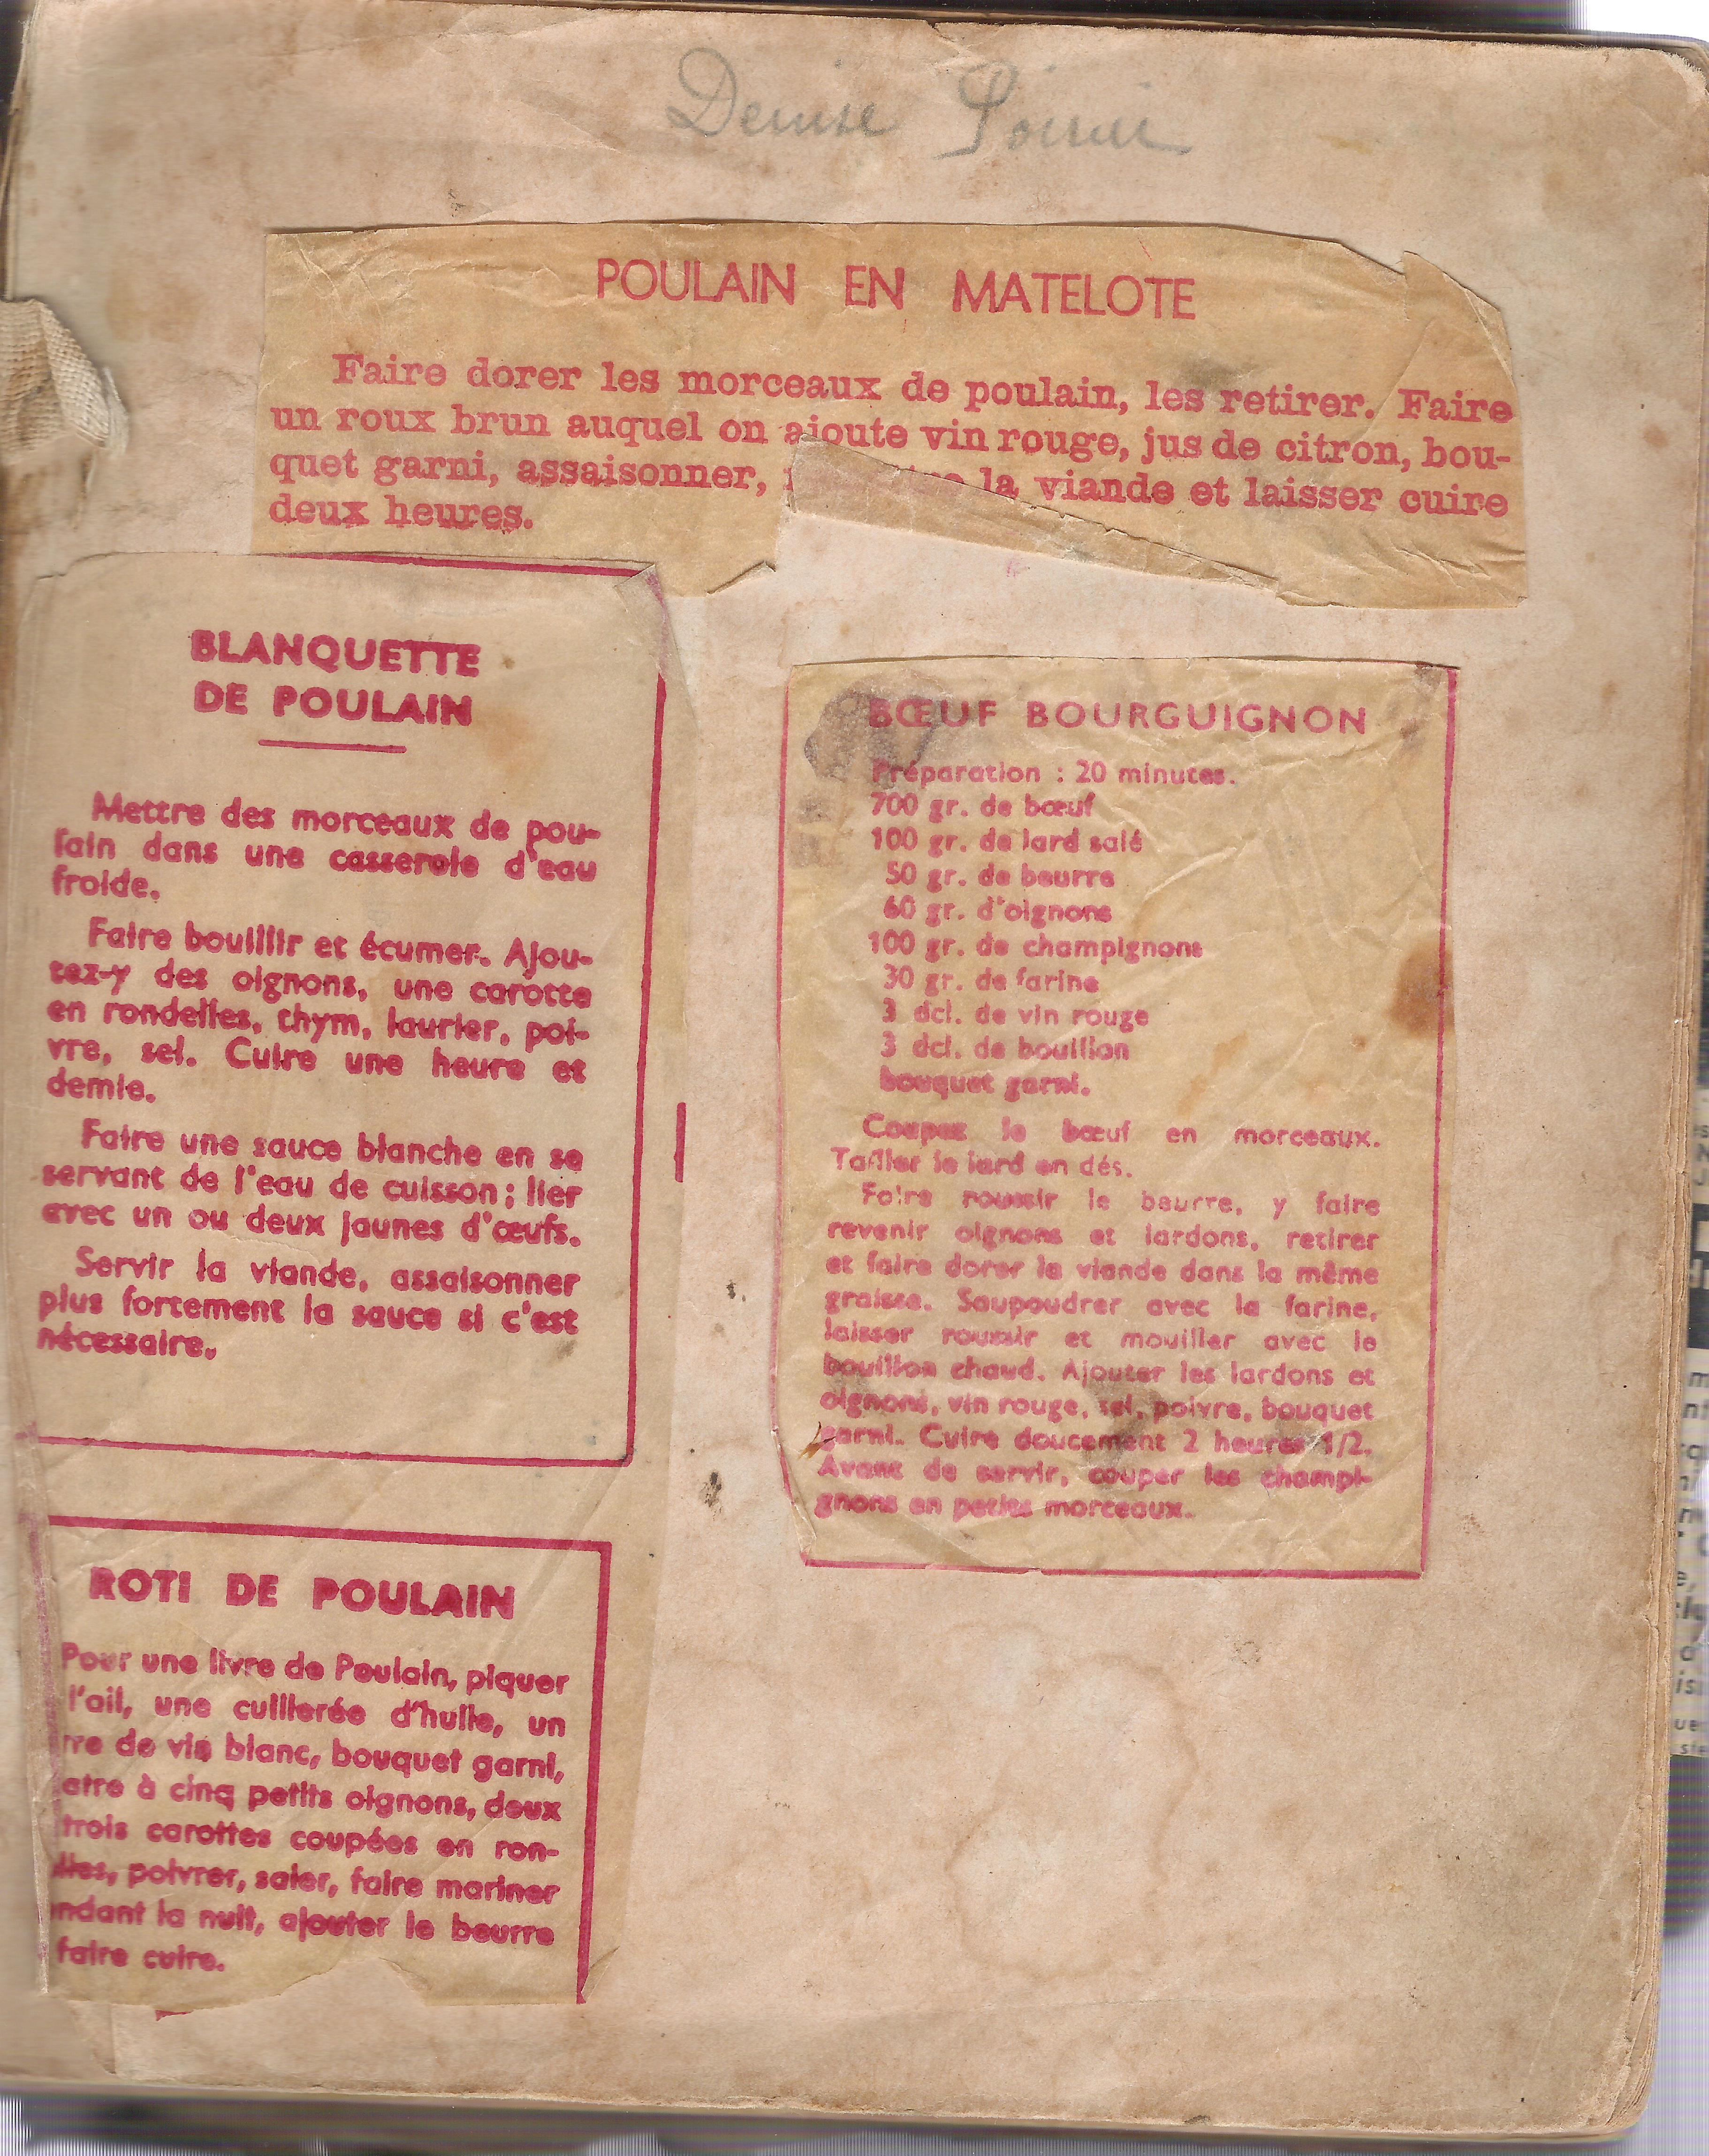 Denise
POULAIN EN MATELOTE
Faire dorer les morceaux de poulain, les retirer. Faire
un roux brun auquel on ajoute vin rouge, jus de citron, bou-
quet garni, assaisonner, la viande et laisser cuire
deux heures.
BLANQUETTE
DE POULAIN
Mettre des morceaux de pou-
lain dans une casserole d'eau
froide.
Faire bouillir et écumer. Ajou-
tez-y des oignons, une carotte
en rondelles, thym, laurier, poi-
vre, sel. Cuire une heure et
demie.
Faire une sauce blanche en se
servant de l'eau de cuisson ; lier
avec un ou deux jaunes d'œufs.
Servir la viande, assaisonner
plus fortement la sauce si c'est
nécessaire.
ROTI DE POULAIN
Pour une livre de Poulain, piquer
l'ail, une cuillerée d'huile, un
rre de vin blanc, bouquet garni,
atre à cinq petits oignons, deux
trois carottes coupées en ron-
lles, poivrer, saler, faire mariner
ndant la nuit, ajouter le beurre
faire cuire.
BŒUF BOURGUIGNON
Préparation : 20 minutes.
700 gr. de bœuf
100 gr. de lard salé
50 gr. de beurre
60 gr. d'oignons
100 gr. de champignons
30 gr. de farine
3 dcl. de vin rouge
3 dcl. de bouillon
bouquet garni.
Coupez le bœuf en morceaux.
Tailler le lard en dés.
Faire roussir le beurre, y faire
revenir oignons et lardons, retirer
et faire dorer la viande dans la même
graisse. Saupoudrer avec la farine,
laisser roussir et mouiller avec le
bouillon chaud. Ajouter les lardons et
oignons, vin rouge, sel, poivre, bouquet
garni. Cuire doucement 2 heures 1/2.
Avant de servir, couper les champi-
gnons en petits morceaux.